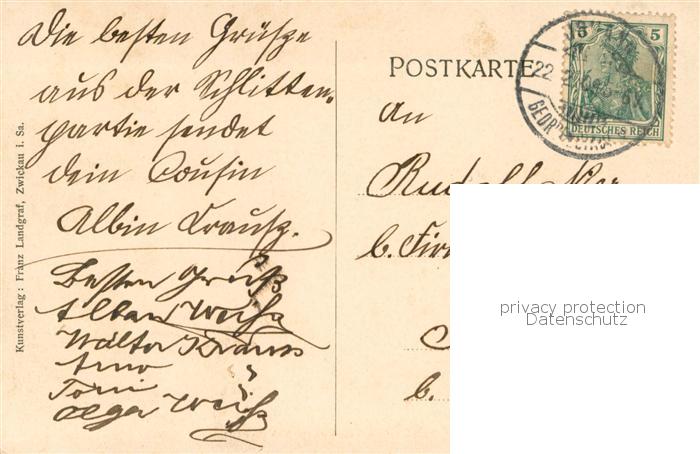 Die besten Grüsze
aus der Schlitten-
partie sendet
dein Cousin
Albin Krausz.
Besten Gruß
Alban Weiß
Walter Krauss
Arno
Toni
Olga Weiß
Kunstverlag: Franz Landgraf, Zwickau i. Sa.
POSTKARTE
An
Rudolf
b. Fir
b.
5 5
DEUTSCHES REICH
22
privacy protection
Datenschutz